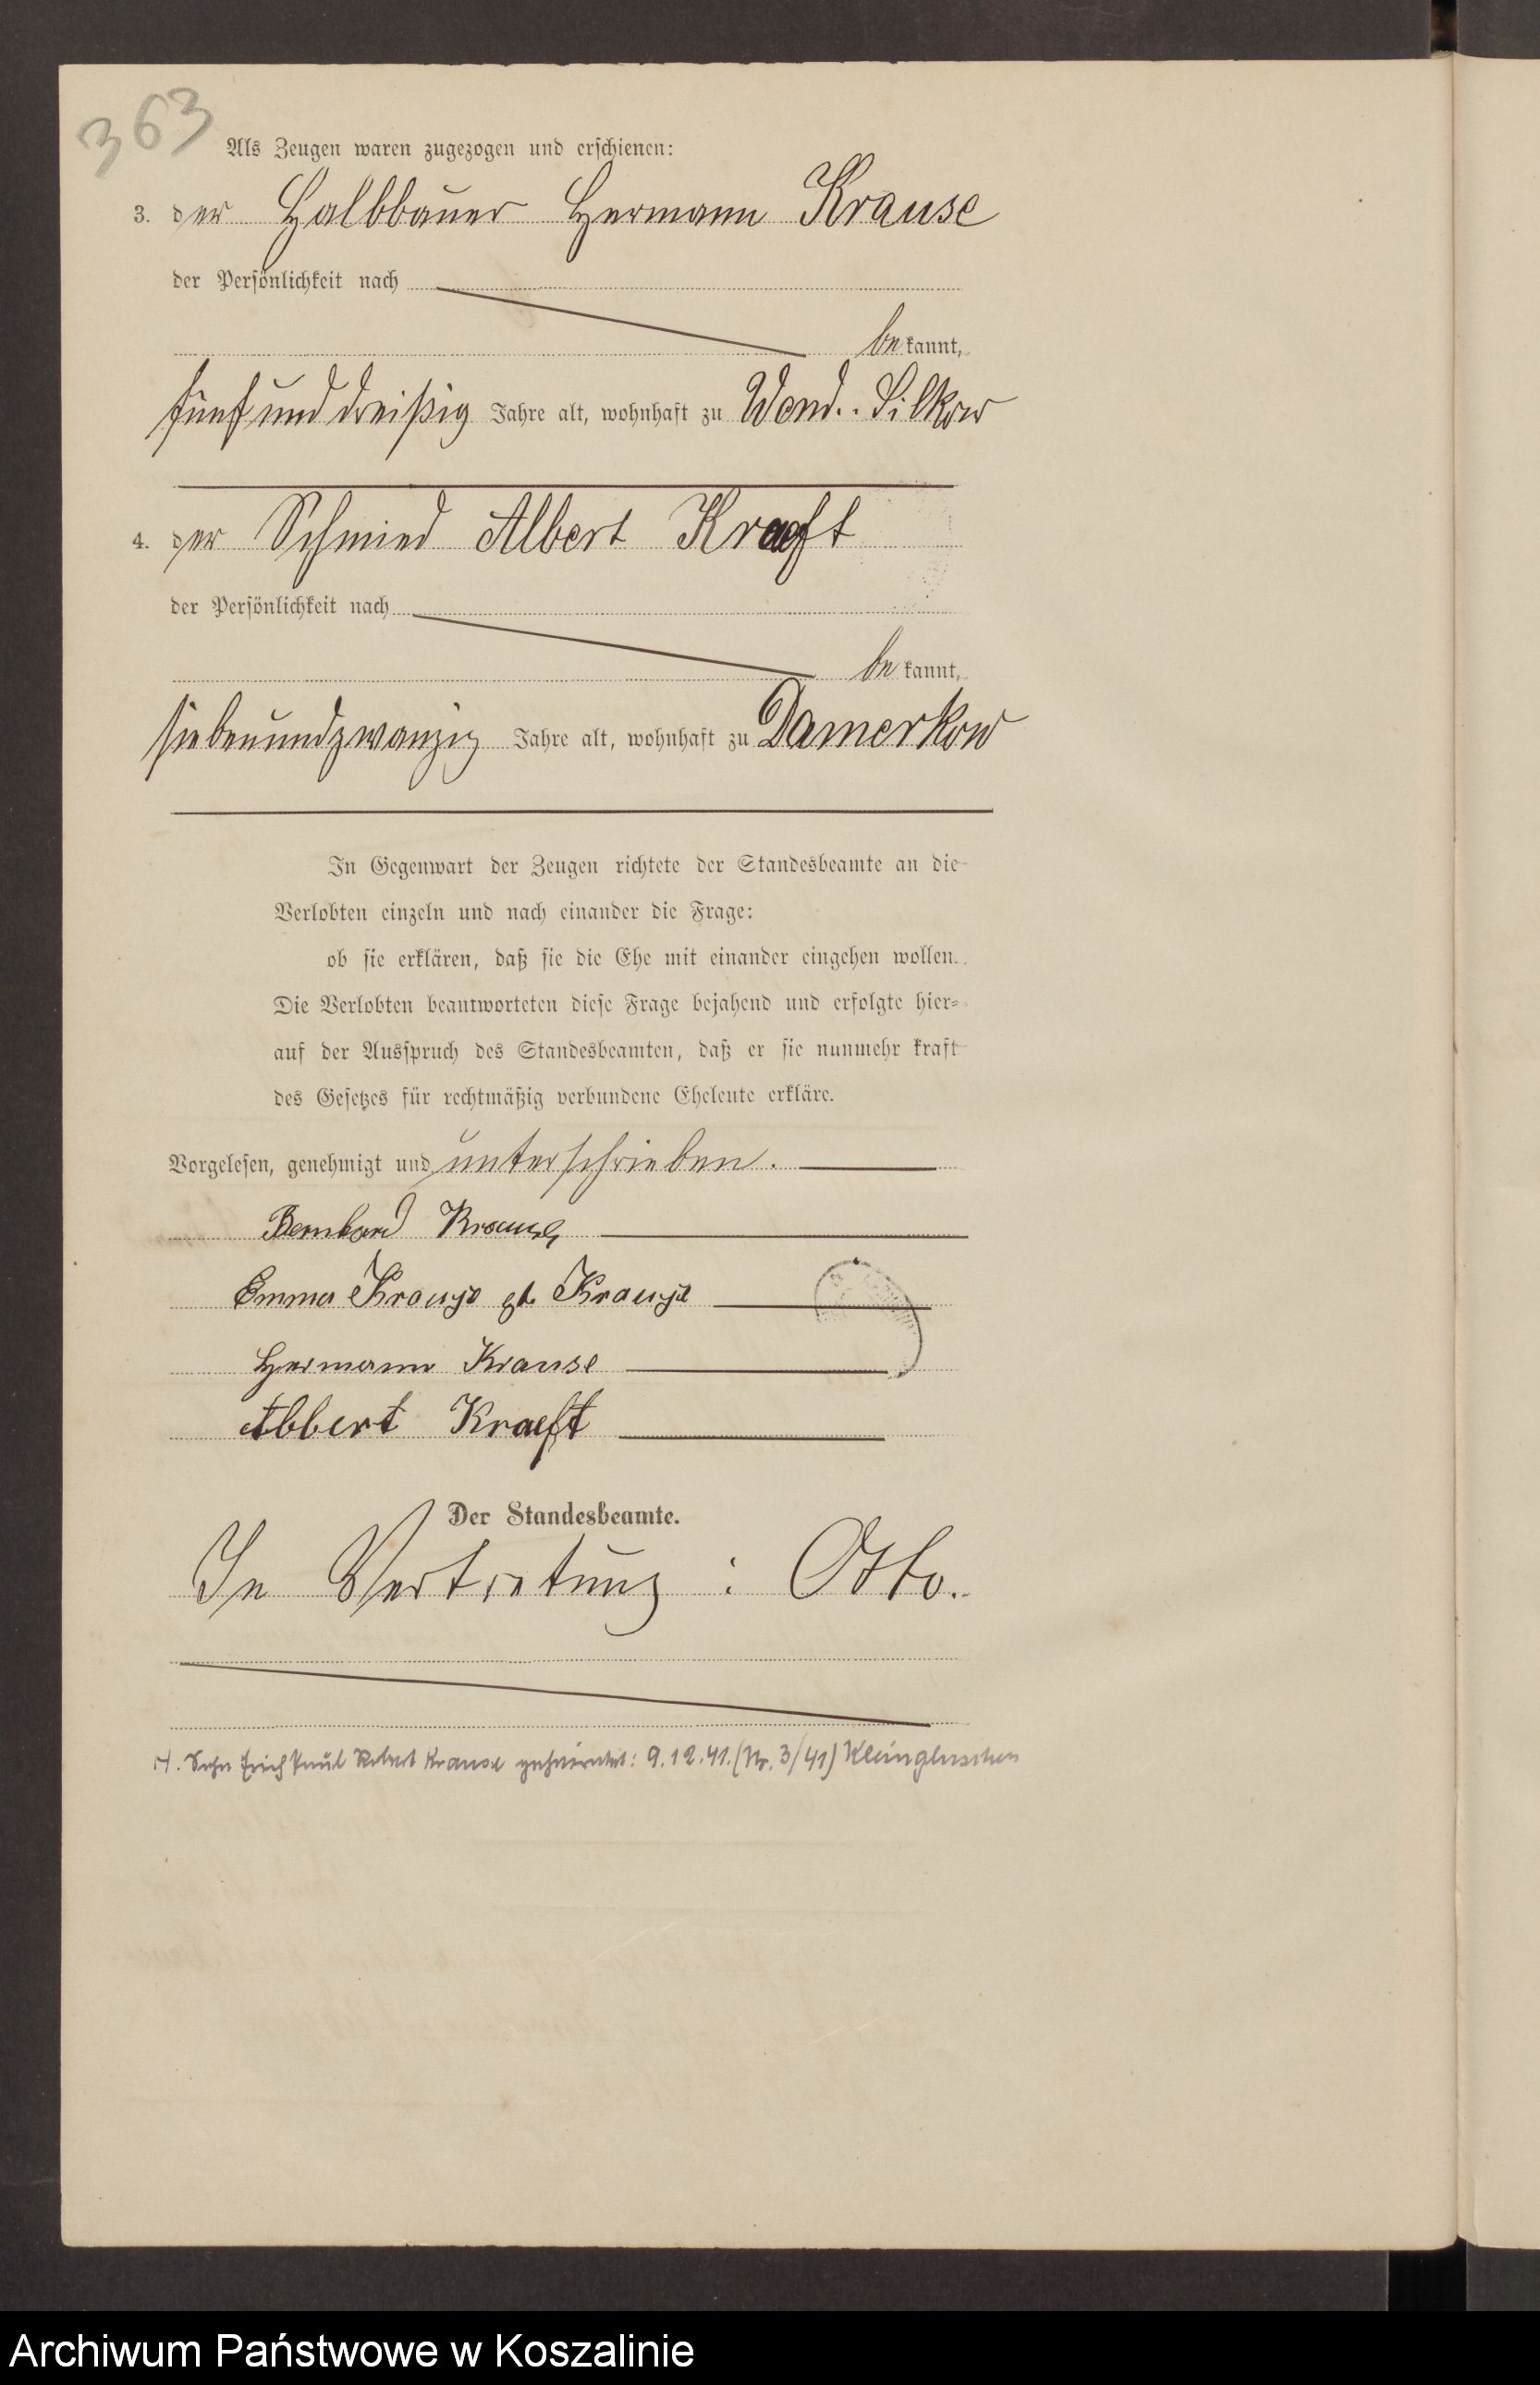 363
Als Zeugen waren zugezogen und erschienen:
3. der Halbbauer Hermann Krause
der Persönlichkeit nach
bekannt,
fünfunddreißig Jahre alt, wohnhaft zu Wend. Silkow
4. der Schmied Albert Kraeft
der Persönlichkeit nach
bekannt,
siebenundzwanzig Jahre alt, wohnhaft zu Damerkow
In Gegenwart der Zeugen richtete der Standesbeamte an die
Verlobten einzeln und nach einander die Frage:
ob sie erklären, daß sie die Ehe mit einander eingehen wollen.
Die Verlobten beantworteten diese Frage bejahend und erfolgte hier-
auf der Ausspruch des Standesbeamten, daß er sie nunmehr kraft
des Gesetzes für rechtmäßig verbundene Eheleute erkläre.
Vorgelesen, genehmigt und unterschrieben.
Bernhard Krause
Emma Krause gb. Krause
Hermann Krause
Albert Kraeft
Der Standesbeamte.
In Vertretung: Otto.
1. Sohn Erich Paul Robert Krause geheiratet: 9.12.41. (Nr. 3/41) Kleingluschen
Archiwum Państwowe w Koszalinie